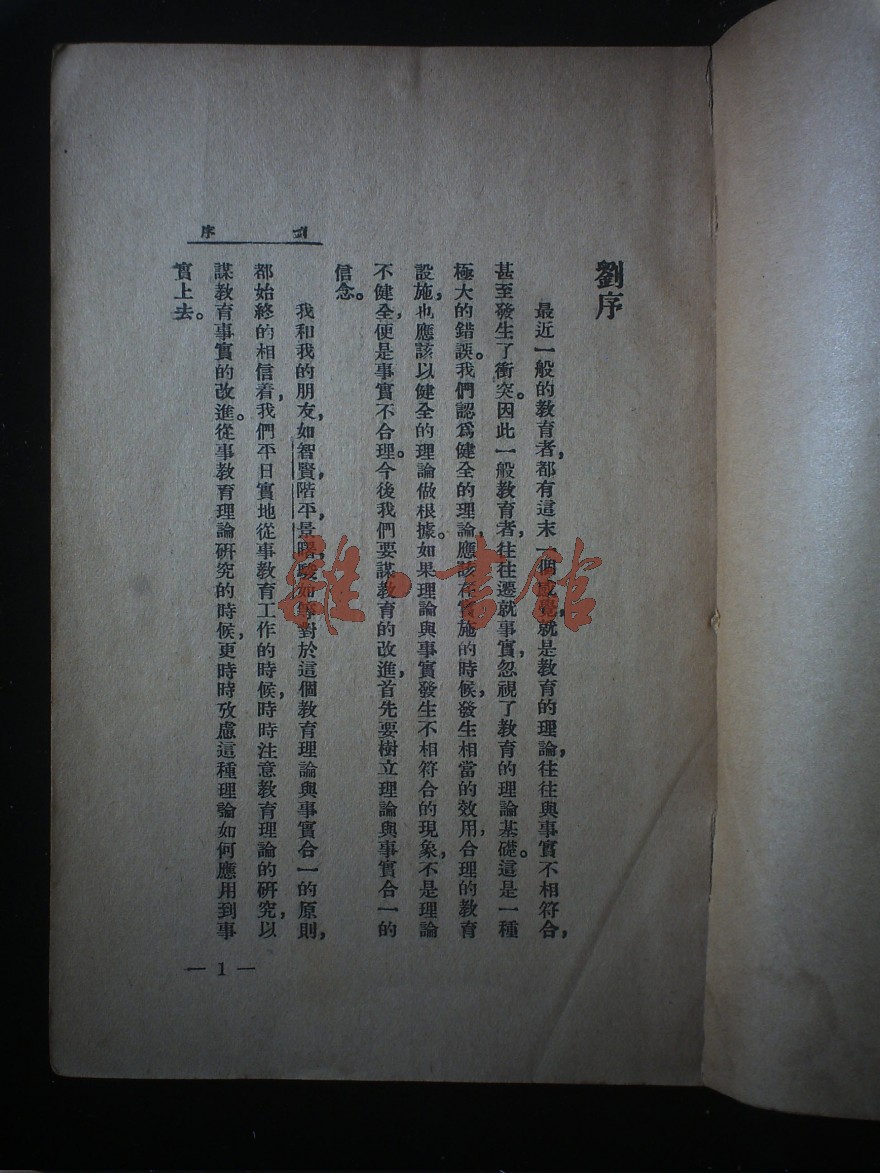 劉序
最近一般的教育者，都有這末一個感覺，就是教育的理論，往往與事實不相符合，
甚至發生了衝突。因此一般教育者，往往遷就事實，忽視了教育的理論基礎。這是一種
極大的錯誤。我們認爲健全的理論，應該在實施的時候，發生相當的效用，合理的教育
設施，也應該以健全的理論做根據。如果理論與事實發生不相符合的現象，不是理論
不健全，便是事實不合理。今後我們要謀教育的改進，首先要樹立理論與事實合一的
信念。
我和我的朋友，如智賢，階平，景曙，駿如等對於這個教育理論與事實合一的原則，
都始終的相信着，我們平日實地從事教育工作的時候，時時注意教育理論的研究，以
謀教育事實的改進。從事教育理論研究的時候，更時時攷慮這種理論如何應用到事
實上去。
序
— 1 —
雜·書館